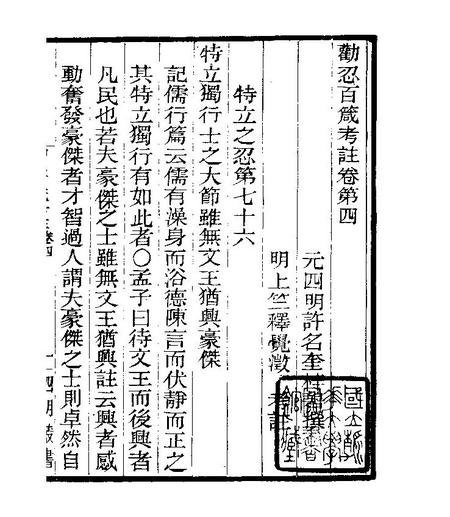 勸忍百箴考註卷第四
元四明許名奎
明上竺釋覺澂
特立之忍第七十六
特立獨行士之大節雖無文王猶興豪傑
記儒行篇云儒有澡身而浴德陳言而伏靜而正之
其特立獨行有如此者〇孟子曰待文王而後興者
凡民也若夫豪傑之士雖無文王猶興註云興者感
動奮發豪傑者才智過人謂夫豪傑之士則卓然自
卷四
四明叢書